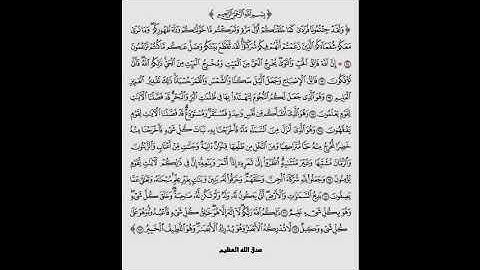 ﴿ بِسْمِ اللَّهِ الرَّحْمَٰنِ الرَّحِيمِ ﴾
﴿ وَلَقَدْ جِئْتُمُونَا فُرَادَىٰ كَمَا خَلَقْنَاكُمْ أَوَّلَ مَرَّةٍ وَتَرَكْتُم مَّا خَوَّلْنَاكُمْ وَرَاءَ ظُهُورِكُمْ وَمَا نَرَىٰ
مَعَكُمْ شُفَعَاءَكُمُ الَّذِينَ زَعَمْتُمْ أَنَّهُمْ فِيكُمْ شُرَكَاءُ لَقَد تَّقَطَّعَ بَيْنَكُمْ وَضَلَّ عَنكُم مَّا كُنتُمْ تَزْعُمُونَ
۞ إِنَّ اللَّهَ فَالِقُ الْحَبِّ وَالنَّوَىٰ يُخْرِجُ الْحَيَّ مِنَ الْمَيِّتِ وَمُخْرِجُ الْمَيِّتِ مِنَ الْحَيِّ ذَٰلِكُمُ اللَّهُ فَأَنَّىٰ
تُؤْفَكُونَ فَالِقُ الْإِصْبَاحِ وَجَعَلَ اللَّيْلَ سَكَنًا وَالشَّمْسَ وَالْقَمَرَ حُسْبَانًا ذَٰلِكَ تَقْدِيرُ الْعَزِيزِ
الْعَلِيمِ وَهُوَ الَّذِي جَعَلَ لَكُمُ النُّجُومَ لِتَهْتَدُوا بِهَا فِي ظُلُمَاتِ الْبَرِّ وَالْبَحْرِ قَدْ فَصَّلْنَا الْآيَاتِ لِقَوْمٍ
يَعْلَمُونَ وَهُوَ الَّذِي أَنشَأَكُم مِّن نَّفْسٍ وَاحِدَةٍ فَمُسْتَقَرٌّ وَمُسْتَوْدَعٌ قَدْ فَصَّلْنَا الْآيَاتِ لِقَوْمٍ
يَفْقَهُونَ وَهُوَ الَّذِي أَنزَلَ مِنَ السَّمَاءِ مَاءً فَأَخْرَجْنَا بِهِ نَبَاتَ كُلِّ شَيْءٍ فَأَخْرَجْنَا مِنْهُ
خَضِرًا نُّخْرِجُ مِنْهُ حَبًّا مُّتَرَاكِبًا وَمِنَ النَّخْلِ مِن طَلْعِهَا قِنْوَانٌ دَانِيَةٌ وَجَنَّاتٍ مِّنْ أَعْنَابٍ وَالزَّيْتُونَ
وَالرُّمَّانَ مُشْتَبِهًا وَغَيْرَ مُتَشَابِهٍ انظُرُوا إِلَىٰ ثَمَرِهِ إِذَا أَثْمَرَ وَيَنْعِهِ إِنَّ فِي ذَٰلِكُمْ لَآيَاتٍ لِّقَوْمٍ
يُؤْمِنُونَ وَجَعَلُوا لِلَّهِ شُرَكَاءَ الْجِنَّ وَخَلَقَهُمْ وَخَرَقُوا لَهُ بَنِينَ وَبَنَاتٍ بِغَيْرِ عِلْمٍ سُبْحَانَهُ وَتَعَالَىٰ عَمَّا
يَصِفُونَ بَدِيعُ السَّمَاوَاتِ وَالْأَرْضِ أَنَّىٰ يَكُونُ لَهُ وَلَدٌ وَلَمْ تَكُن لَّهُ صَاحِبَةٌ وَخَلَقَ كُلَّ شَيْءٍ
وَهُوَ بِكُلِّ شَيْءٍ عَلِيمٌ ذَٰلِكُمُ اللَّهُ رَبُّكُمْ لَا إِلَٰهَ إِلَّا هُوَ خَالِقُ كُلِّ شَيْءٍ فَاعْبُدُوهُ وَهُوَ عَلَىٰ
كُلِّ شَيْءٍ وَكِيلٌ لَّا تُدْرِكُهُ الْأَبْصَارُ وَهُوَ يُدْرِكُ الْأَبْصَارَ وَهُوَ اللَّطِيفُ الْخَبِيرُ ﴾
صدق الله العظيم